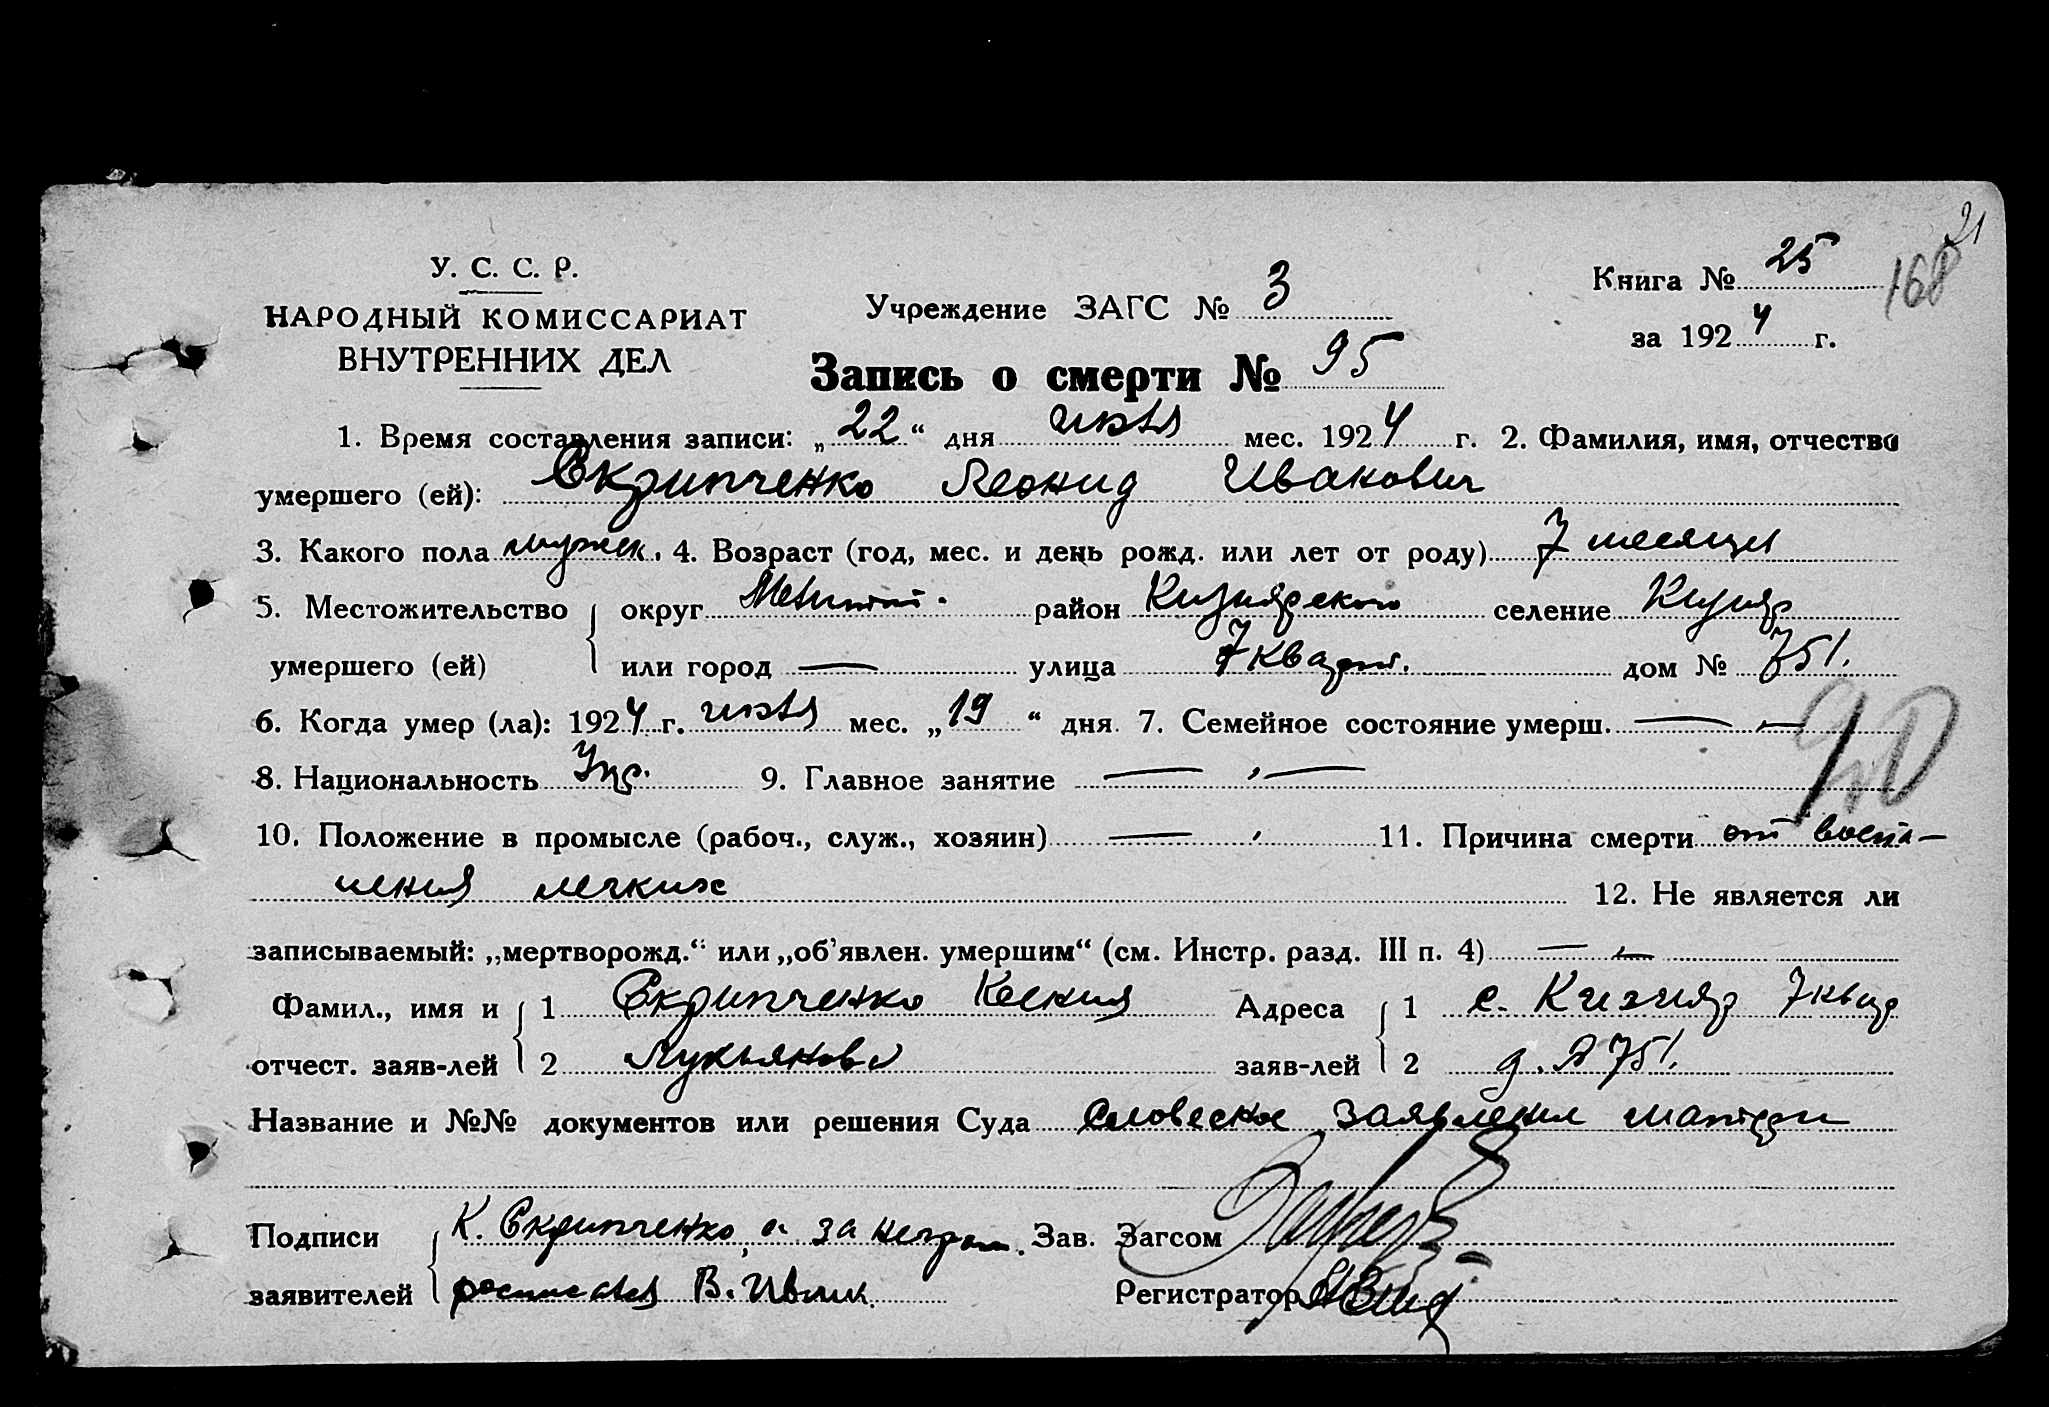 21
168
У. С. С. Р.
НАРОДНЫЙ КОМИССАРИАТ
ВНУТРЕННИХ ДЕЛ
Учреждение ЗАГС № 3
Книга № 25
за 1924 г.
Запись о смерти № 95
1. Время составления записи: „22“ дня июля мес. 1924 г. 2. Фамилия, имя, отчество
умершего (ей): Скрипченко Леонид Иванович
3. Какого пола мужск. 4. Возраст (год, мес. и день рожд. или лет от роду) 7 месяцы
5. Местожительство округ район Кизиярского селение Кизияр
умершего (ей) или город — улица 7 кварт. дом № 751.
6. Когда умер (ла): 1924 г. июля мес. „19“ дня. 7. Семейное состояние умерш. — „ —
8. Национальность Укр. 9. Главное занятие — „ —
10. Положение в промысле (рабоч., служ., хозяин) — „ 11. Причина смерти от воспа-
ления легких 12. Не является ли
записываемый: „мертворожд.“ или „об’явлен. умершим“ (см. Инстр. разд. III п. 4) — „ —
Фамил., имя и 1 Скрипченко Ксения Адреса 1 с. Кизияр 7 квар
отчест. заяв-лей 2 Лукьянова заяв-лей 2 д. № 751.
Название и №№ документов или решения Суда словесное заявление матери
Подписи К. Скрипченко, а за неграм. Зав. Загсом
заявителей В. Регистратор